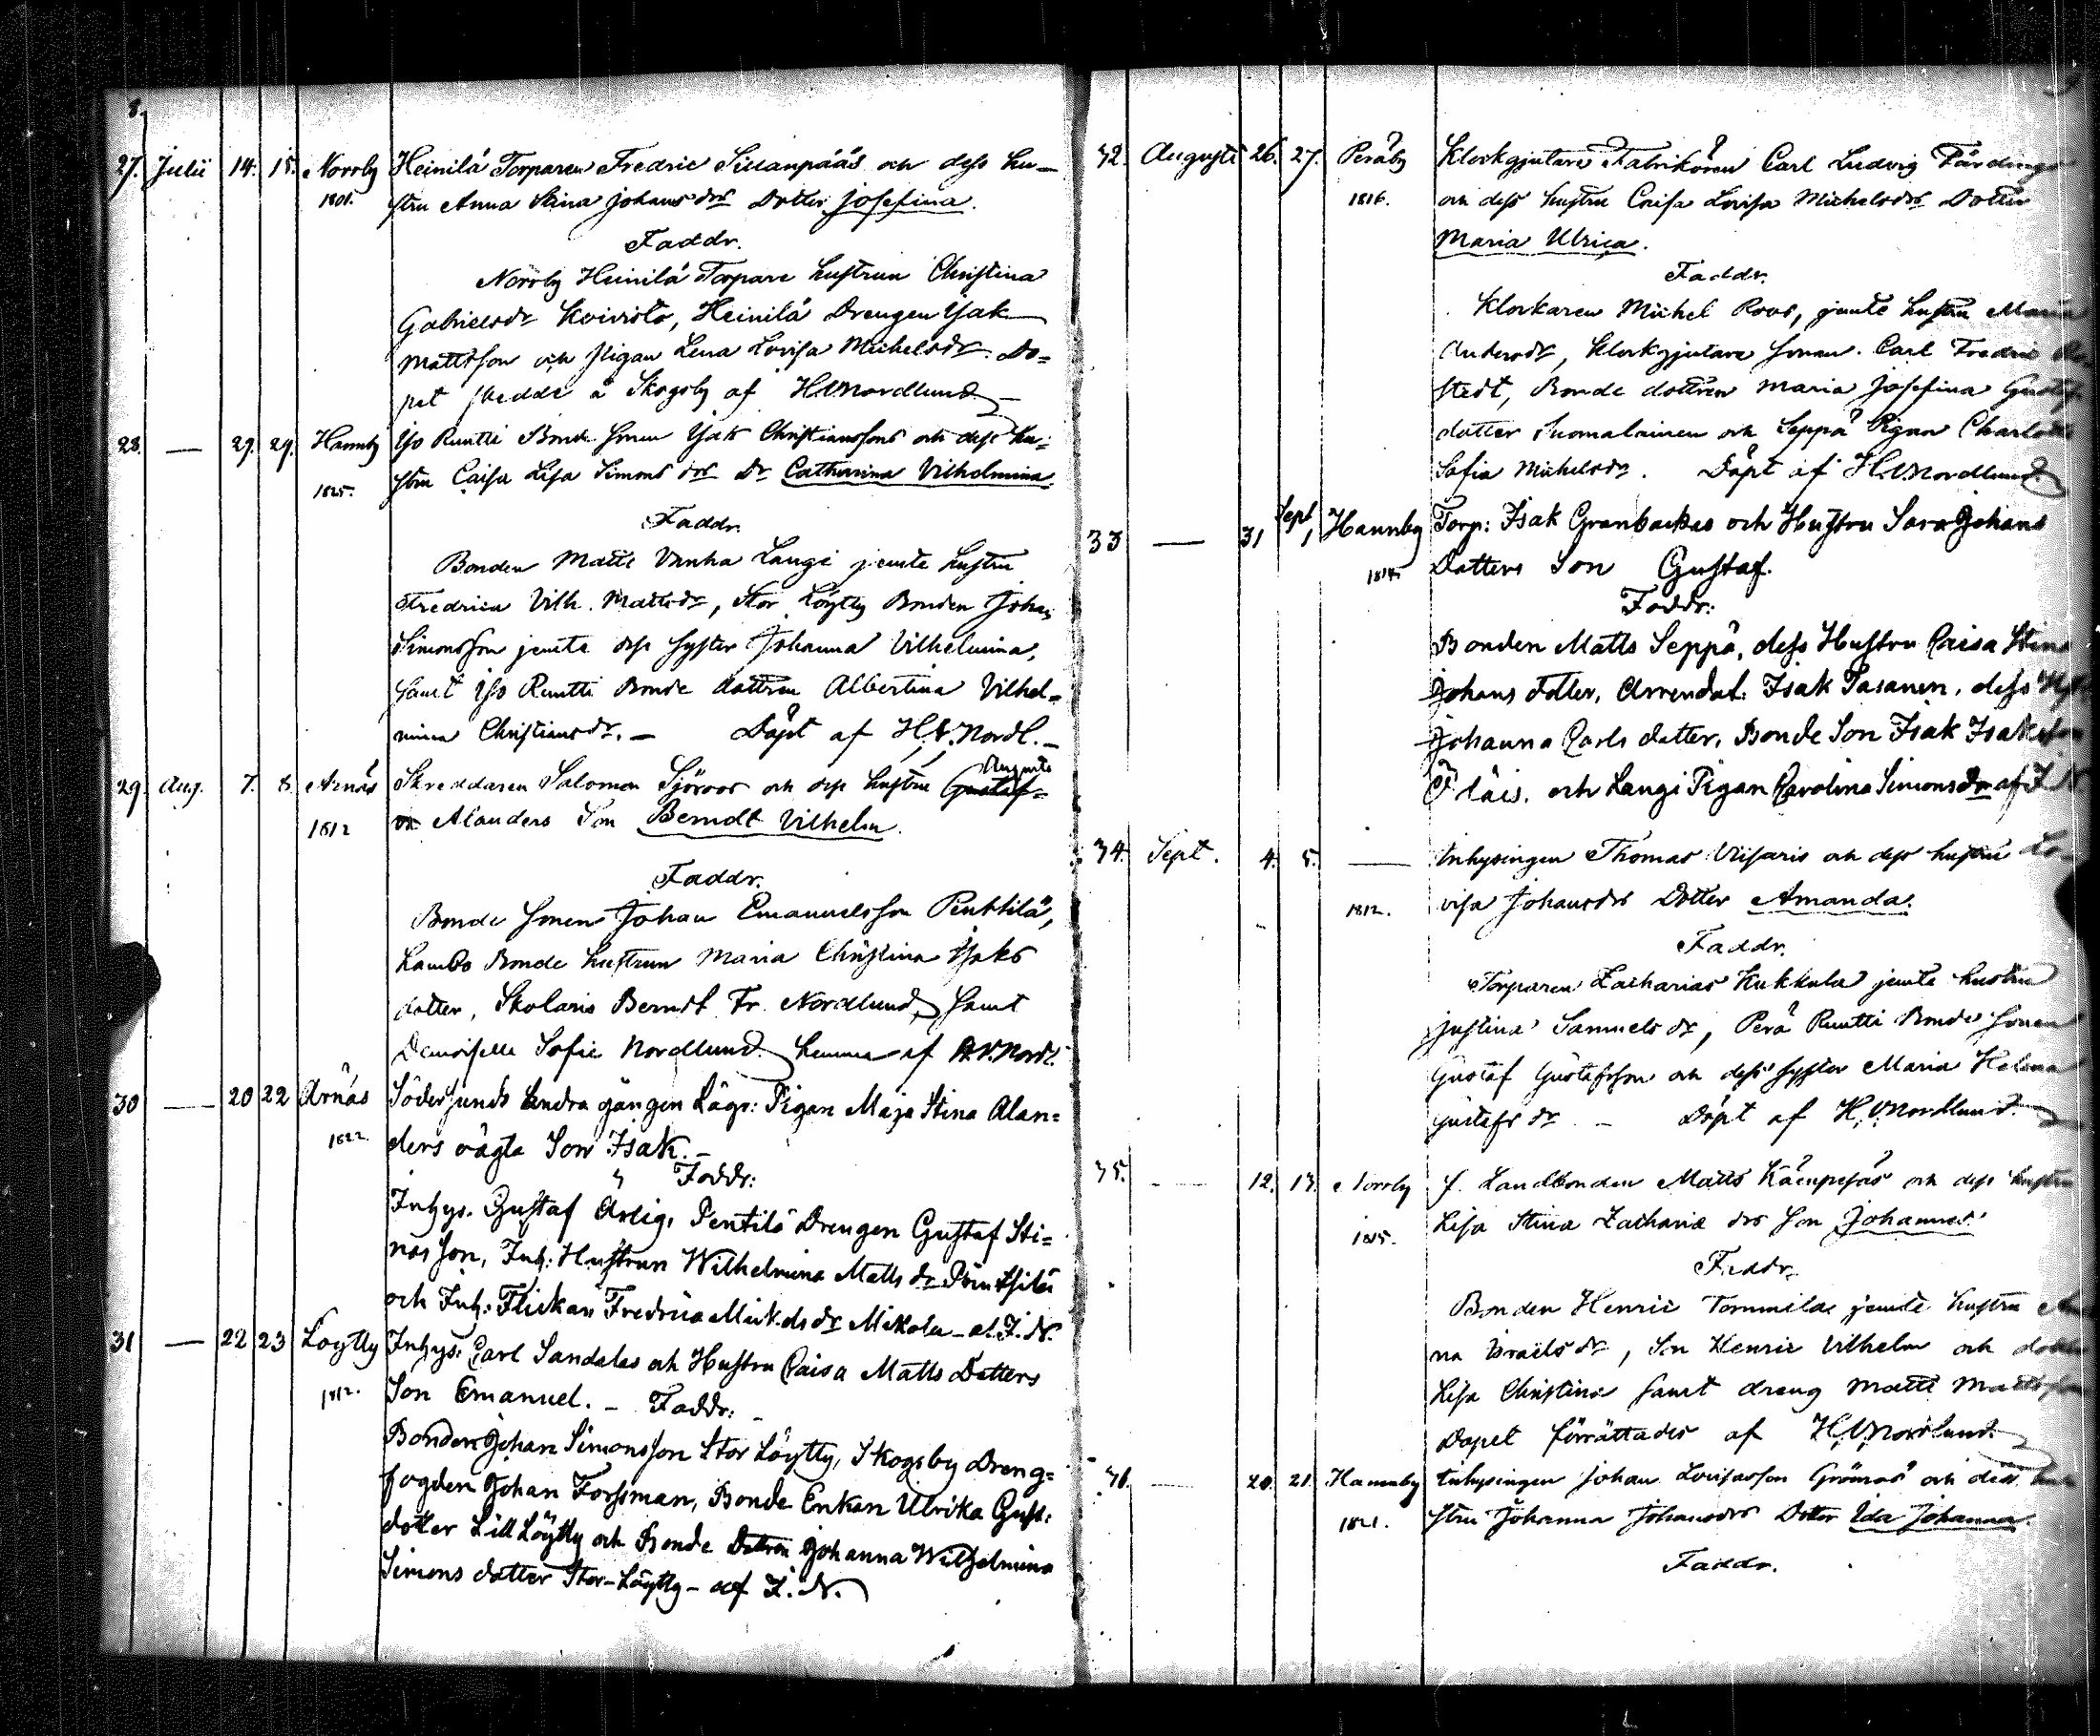 8.
27. Julii 14. 15. Norrby Heinilä Torparen Fredric Sillanpääs och dess hu-
1801. stru Anna Stina Johans drs Dotter Josefina.
Faddr.
Norrby Heinilä Torpare hustrun Christina
Gabrielsdr Koivisto, Heinilä Drengen Isak
Mattsson och pigan Lena Lovisa Michelsdr. Do=
pet skedde å Skogsby af H.V.Nordlund
28. — 29. 29. Hannby Iso Runtti Bonde sonen Isak Christianssons och dess hu=
1825. stru Caisa Lisa Simons drs Dr Catharina Vilhelmina.
Faddr.
Bonden Matts Vanha Langi jemte hustru
Fredrica Vilh. Mattsdr, Stor Löytty Bonden Johan
Simonsson jemte dess syster Johanna Vilhelmina,
samt Iso Runtti Bonde dottren Albertina Vilhel=
mina Christiansdr. — Döpt af H.V.Nordl. —
29. Aug. 7. 8. Arnäs Skreddaren Salomon Sjöroos och dess hustru Gustaf= Augusta
1812 va Alanders Son Berndt Vilhelm.
Faddr.
Bonde sonen Johan Emanuelsson Penttilä,
Lambo Bonde hustrun Maria Christina Isaks
dotter, Skolaris Berndt Fr. Nordlund, samt
Demoiselle Sofie Nordlund. hemma af H.V.Nordl.
30 — 20 22 Arnäs Södersunds andra gången Lägr: Pigan Maja Stina Alan=
1822. ders oägta Son Isak. —
Faddr:
Inhys. Gustaf Arlig, Pentilä Drengen Gustaf Sti=
nasson, Inh: Hustrun Wilhelmina Matts dr
och Inh: Flickan Fredrica Mickelsdr Mikola — af I. N.
31 — 22 23 Loytty Inhys: Carl Sandelas och Hustru Caisa Matts Dotters
1812. Son Emanuel. — Faddr:
Bonden Johan Simonsson Stor Löytty, Skogsby Dreng=
fogden Johan Forssman, Bonde Enkan Ulrika Gust:
dotter Lill Löytty och Bonde Dottren Johanna Wilhelmina
Simons dotter Stor-Löytty — af I. N.
32. Augusti 26. 27. Peräby Klockgjutare Fabrikören Carl Ludvig
1816. och dess hustru Caisa Lovisa Michelsdrs Dotter
Maria Ulrica.
Faddr.
Klockaren Michel Roos, jemte hustru Maria
Andersdr, Klockgjutare sonen Carl Fredric
stedt, Bonde dottren Maria Josefina Gustafs
dotter Suomalainen och Seppä Pigan Charlotta
Sofia Michelsdr. Döpt af H.V.Nordlund.
33 — 31 Sept 1 Hannby Torp: Isak Granbackas och Hustru Sara Johans
1814. Dotters Son Gustaf.
Faddr:
Bonden Matts Seppä, dess Hustru Caisa Stina
Johans dotter, Arrendat: Isak Pasanen, dess
Johanna Carls dotter, Bonde Son Isak Isaksson
och Langi Pigan Carolina Simons dr af I N
34. Sept. 4. 5. — Inhysingen Thomas Viisaris och dess hustru Lo-
1812. visa Johansdrs Dotter Amanda.
Faddr.
Torparen Zacharias Kukkola jemte hustru
Justina Samuels dr, Perä Runtti Bonde sonen
Gustaf Gustafsson och dess syster Maria Helena
Gustafs dr — Döpt af H.V.Nordlund.
35. — 12. 13. Norrby f. Landbonden Matts Kämpesäs och dess hustru
1815. Lisa Stina Zachariæ drs son Johannes.
Faddr.
Bonden Henric Tommila jemte hustru An
na Israelsdr, Son Henric Vilhelm och dotter
Lisa Christina samt dreng Matts Mattsson
Dopet förrättades af H.V.Nordlund.
36. — 20. 21. Hannby Inhysingen Johan Lovisasson Grönroos och dess hu
1821. stru Johanna Johansdrs Dotter Ida Johanna.
Faddr.